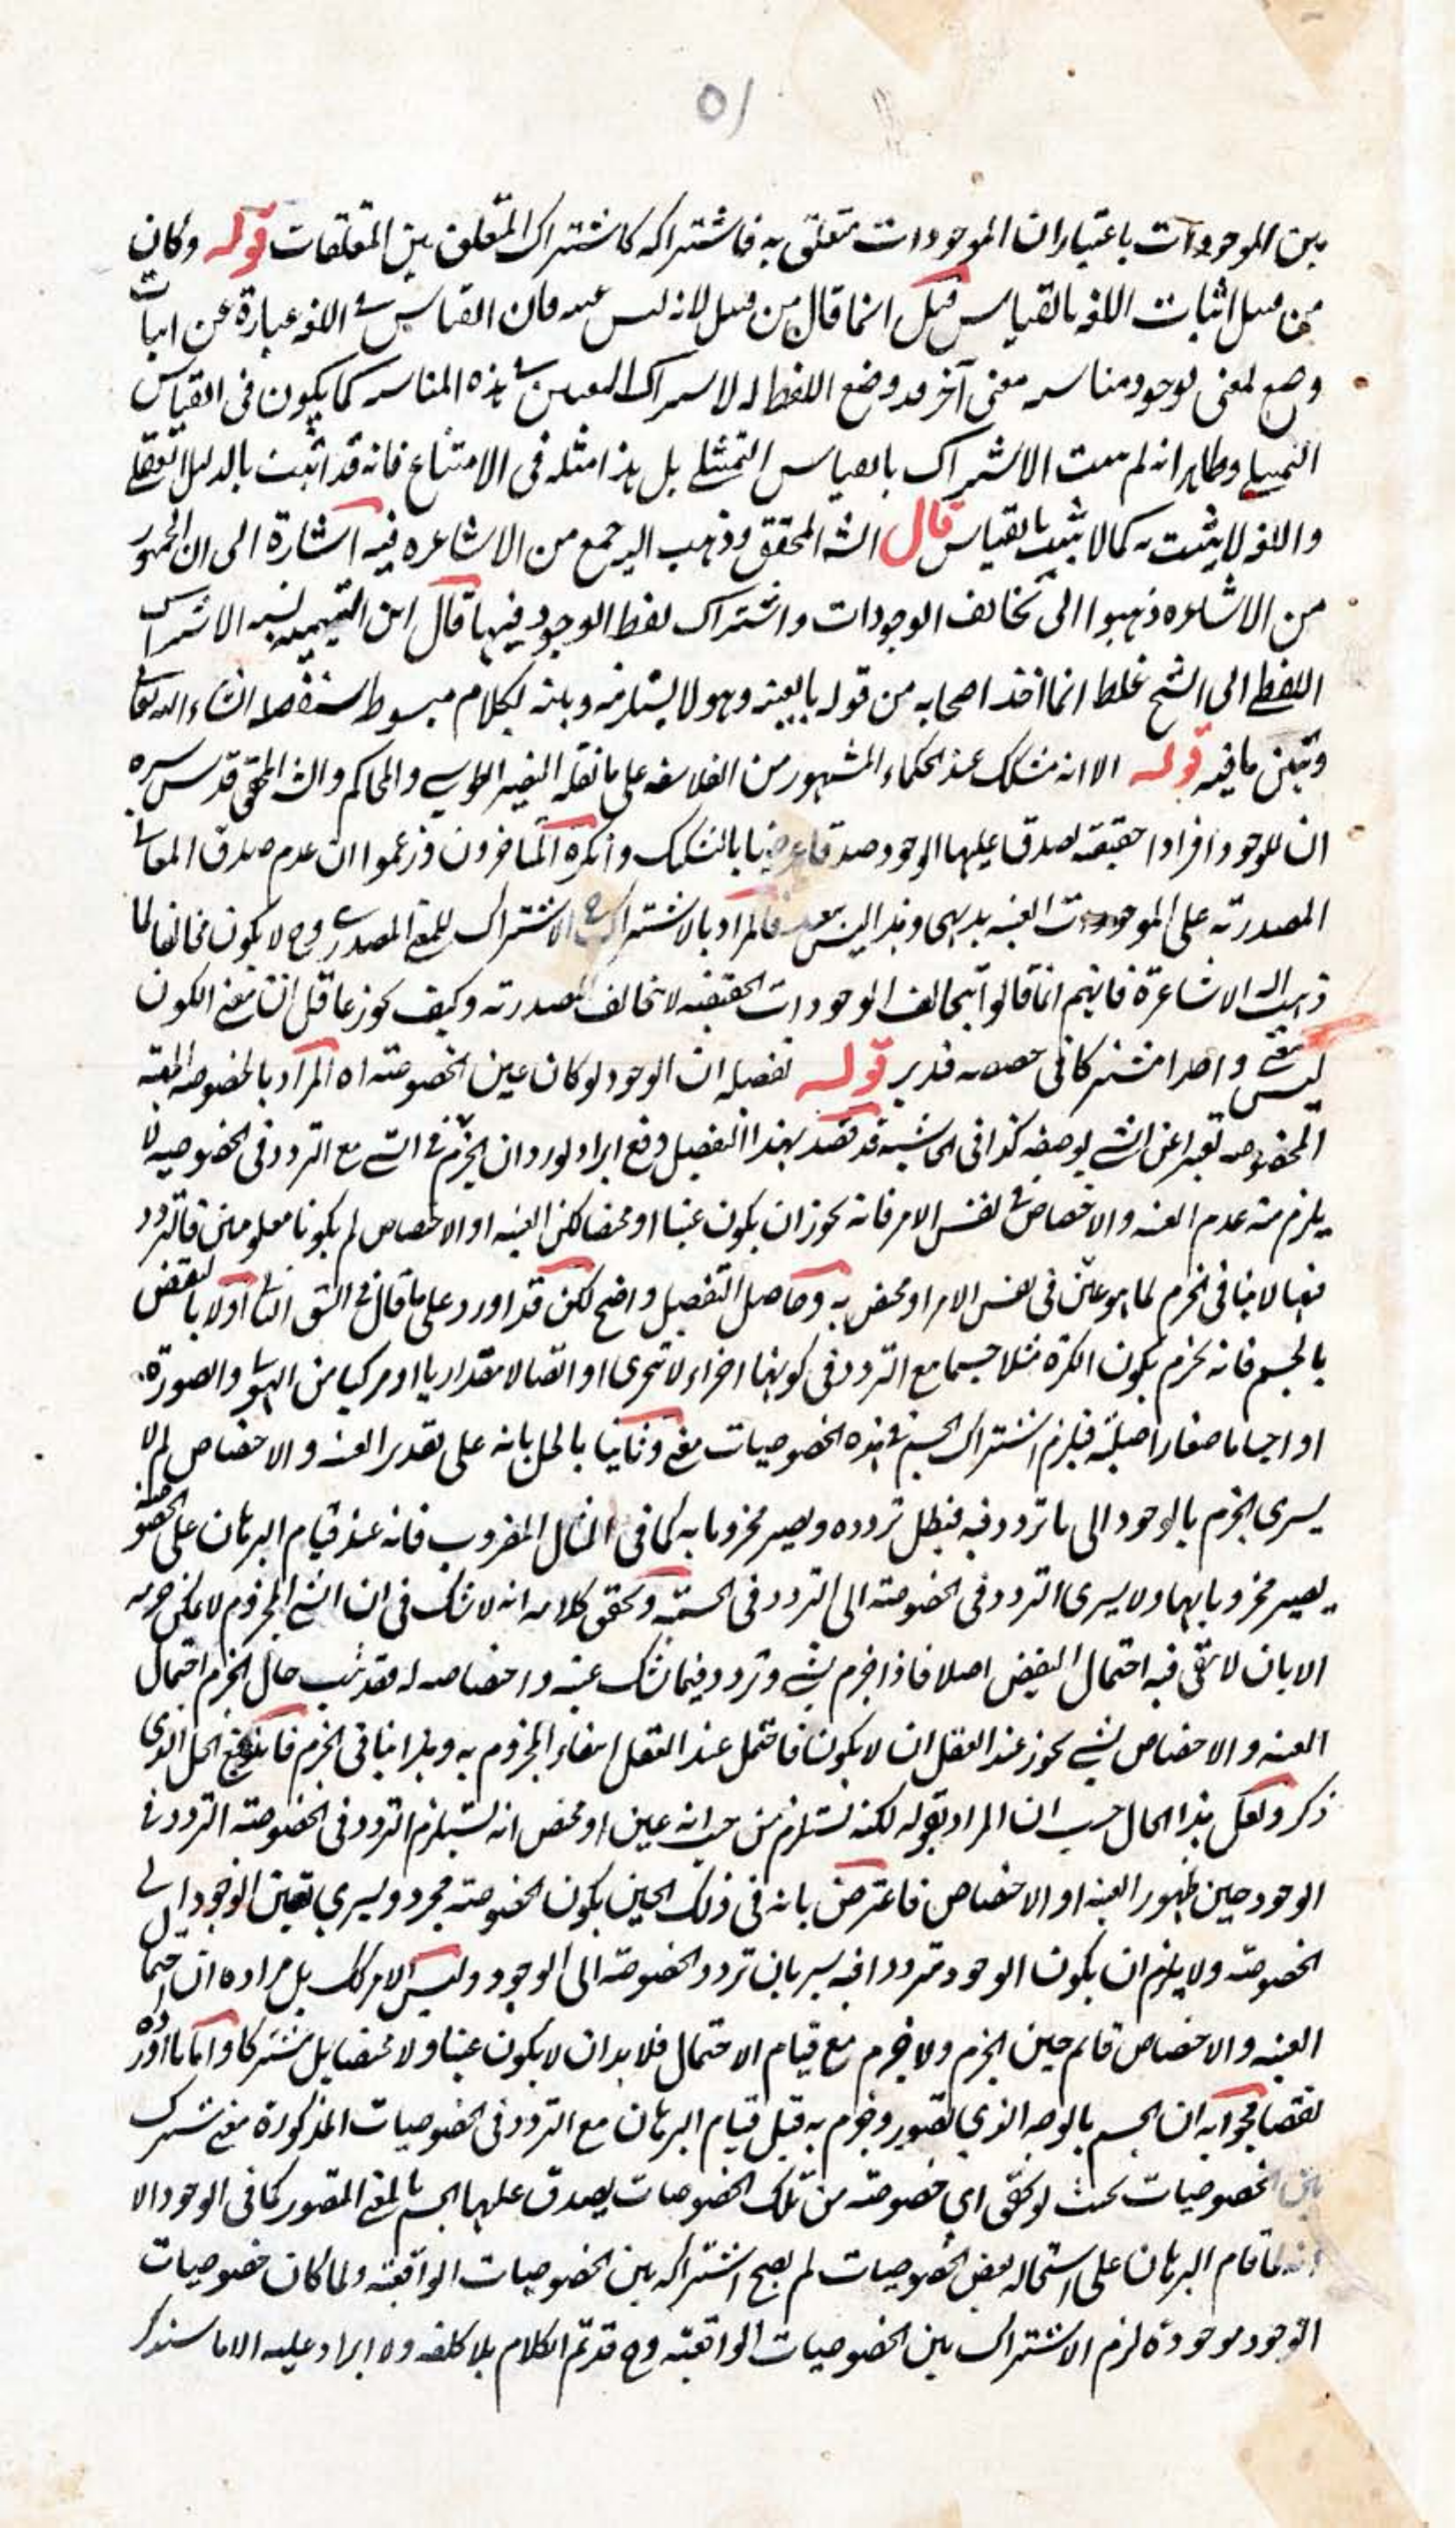 ٥١
بين الموجودات باعتبار ان الموجودات متعلق به فاشتراكه كاشتراك المتعلق بين المتعلقات قوله وكان
من قبيل اثبات اللغه بالقياس قيل انما قال من قبيل لانه ليس عينه فان القياس في اللغه عبارة عن اثبات
وضع لمعنى لوجود مناسبه معنى آخر قد وضع اللفظ له لاشتراك المعنيين في هذه المناسبه كما يكون في القياس
التمثيلي وظاهر انه لم يثبت الاشتراك بالقياس التمثيلي بل هذا مثله في الامتناع فانه قد اثبت بالدليل العقلي
واللغه لا يثبت به كما لا يثبت بالقياس قال الشه المحقق وذهب اليه جمع من الاشاعره فيه اشارة الى ان الجمهور
من الاشاعره ذهبوا الى تخالف الوجودات واشتراك لفظ الوجود فيها قال ابن التيميه نسبه الاشتراك
اللفظي الى الشيخ غلط انما اخذ اصحابه من قوله بالعينيه وهو لا يستلزمه وبينه بكلام مبسوط سنفصله انشاء الله تعالى
ونبين ما فيه قوله الا انه مشكك عند الحكماء المشهور من الفلاسفه على ما نقله النصير الطوسي والمحاكم والشه المحقق قدس سره
ان للوجود افرادا حقيقيه يصدق عليها الوجود صدقا عرضيا بالتشكيك وانكره المتاخرون وزعموا ان عدم صدق المعاني
المصدريه على الموجودات العينيه بديهي وهذا ليس ببعيد فالمراد بالاشتراك ح الاشتراك للمعنى المصدري وح لا يكون مخالفا لما
ذهب اليه الاشاعرة فانهم انما قالوا بتخالف الوجودات الحقيقيه لا تخالف المصدريه وكيف يجوز عاقل ان معنى الكون
ليس معنى واحدا مشتركا في حصصه فتدبر قوله تفصيله ان الوجود لو كان عين الخصوصيه اه المراد بالخصوصيه
المخصوصه تعبيرا عن الشي بوصفه كذا في الحاشيه قد قصد بهذا التفصيل دفع ايراد يورد ان الجزم في الشي مع التردد في الخصوصيه لا
يلزم منه عدم العينيه والاختصاص في نفس الامر فانه يجوز ان يكون عينا او مختصا لكن العينيه او الاختصاص لم يكونا معلومين فالتردد
فيها لا ينافي الجزم لما هو عين في نفس الامر او مختص به وحاصل التفصيل واضح لكن قد اورد على ما قال في الشق الثاني اولا بالنقض
بالجسم فانه يجزم بكون الكرة مثلا جسما مع التردد في كونها اجزاء لا تتجزى او اتصالا مقداريا او مركبا من الهيولي والصورة
او اجساما صغارا صلبه فيلزم اشتراك الجسم في هذه الخصوصيات معنى وثانيا بالحل بانه على تقدير العينيه والاختصاص لم لا
يسرى الجزم بالوجود الى ما تردد فيه فيبطل تردده ويصير مجزوما به كما في المثال المضروب فانه عند قيام البرهان على الخصوصيه
يصير مجزوما بهما ولا يسرى التردد في الخصوصيه الى التردد في الجسميه وتحقق كلامه انه لا شك في ان الشي المجزوم لا يمكن جزمه
الا بان لا يبقى فيه احتمال النقيض اصلا فاذا جزم بشي وتردد فيما شك عينيه واختصاصه له فقد ثبت حال الجزم احتمال
العينيه والاختصاص لشي يجوز عند العقل ان لا يكون فاحتمل عند العقل انتفاء المجزوم به وهذا ينافي الجزم فاندفع الحل الذي
ذكر ولعل هذا الحال حسب ان المراد بقوله لكنه يستلزم من حيث انه عين او مختص انه يستلزم التردد في الخصوصيه التردد في
الوجود حين ظهور العينيه او الاختصاص فاعترض بانه في ذلك الحين يكون الخصوصيه مجرد ويسري تعين الوجود الى
الخصوصيه ولا يلزم ان يكون الوجود مترددا فيه بسريان تردد الخصوصيه الى الوجود وليس الامر كك بل مراده ان احتمال
العينيه والاختصاص قائم حين الجزم ولا جزم مع قيام الاحتمال فلا بد ان لا يكون عينا ولا مختصا بل مشتركا واما ما اورده
نقضا فجوابه ان الجسم بالوجه الذي تصور وجزم به قبل قيام البرهان مع التردد في الخصوصيات المذكورة معنى مشترك
بين الخصوصيات بحيث لو تحقق اي خصوصيه من تلك الخصوصيات يصدق عليها الجسم بالمعنى المتصور كما في الوجود الا
انه لما قام البرهان على استحاله بعض الخصوصيات لم يصح اشتراكه بين الخصوصيات الواقعيه ولما كان خصوصيات
الوجود موجودة لزم الاشتراك بين الخصوصيات الواقعيه وح قد تم الكلام بلا كلفه ولا ايراد عليه الا ما سنذكر